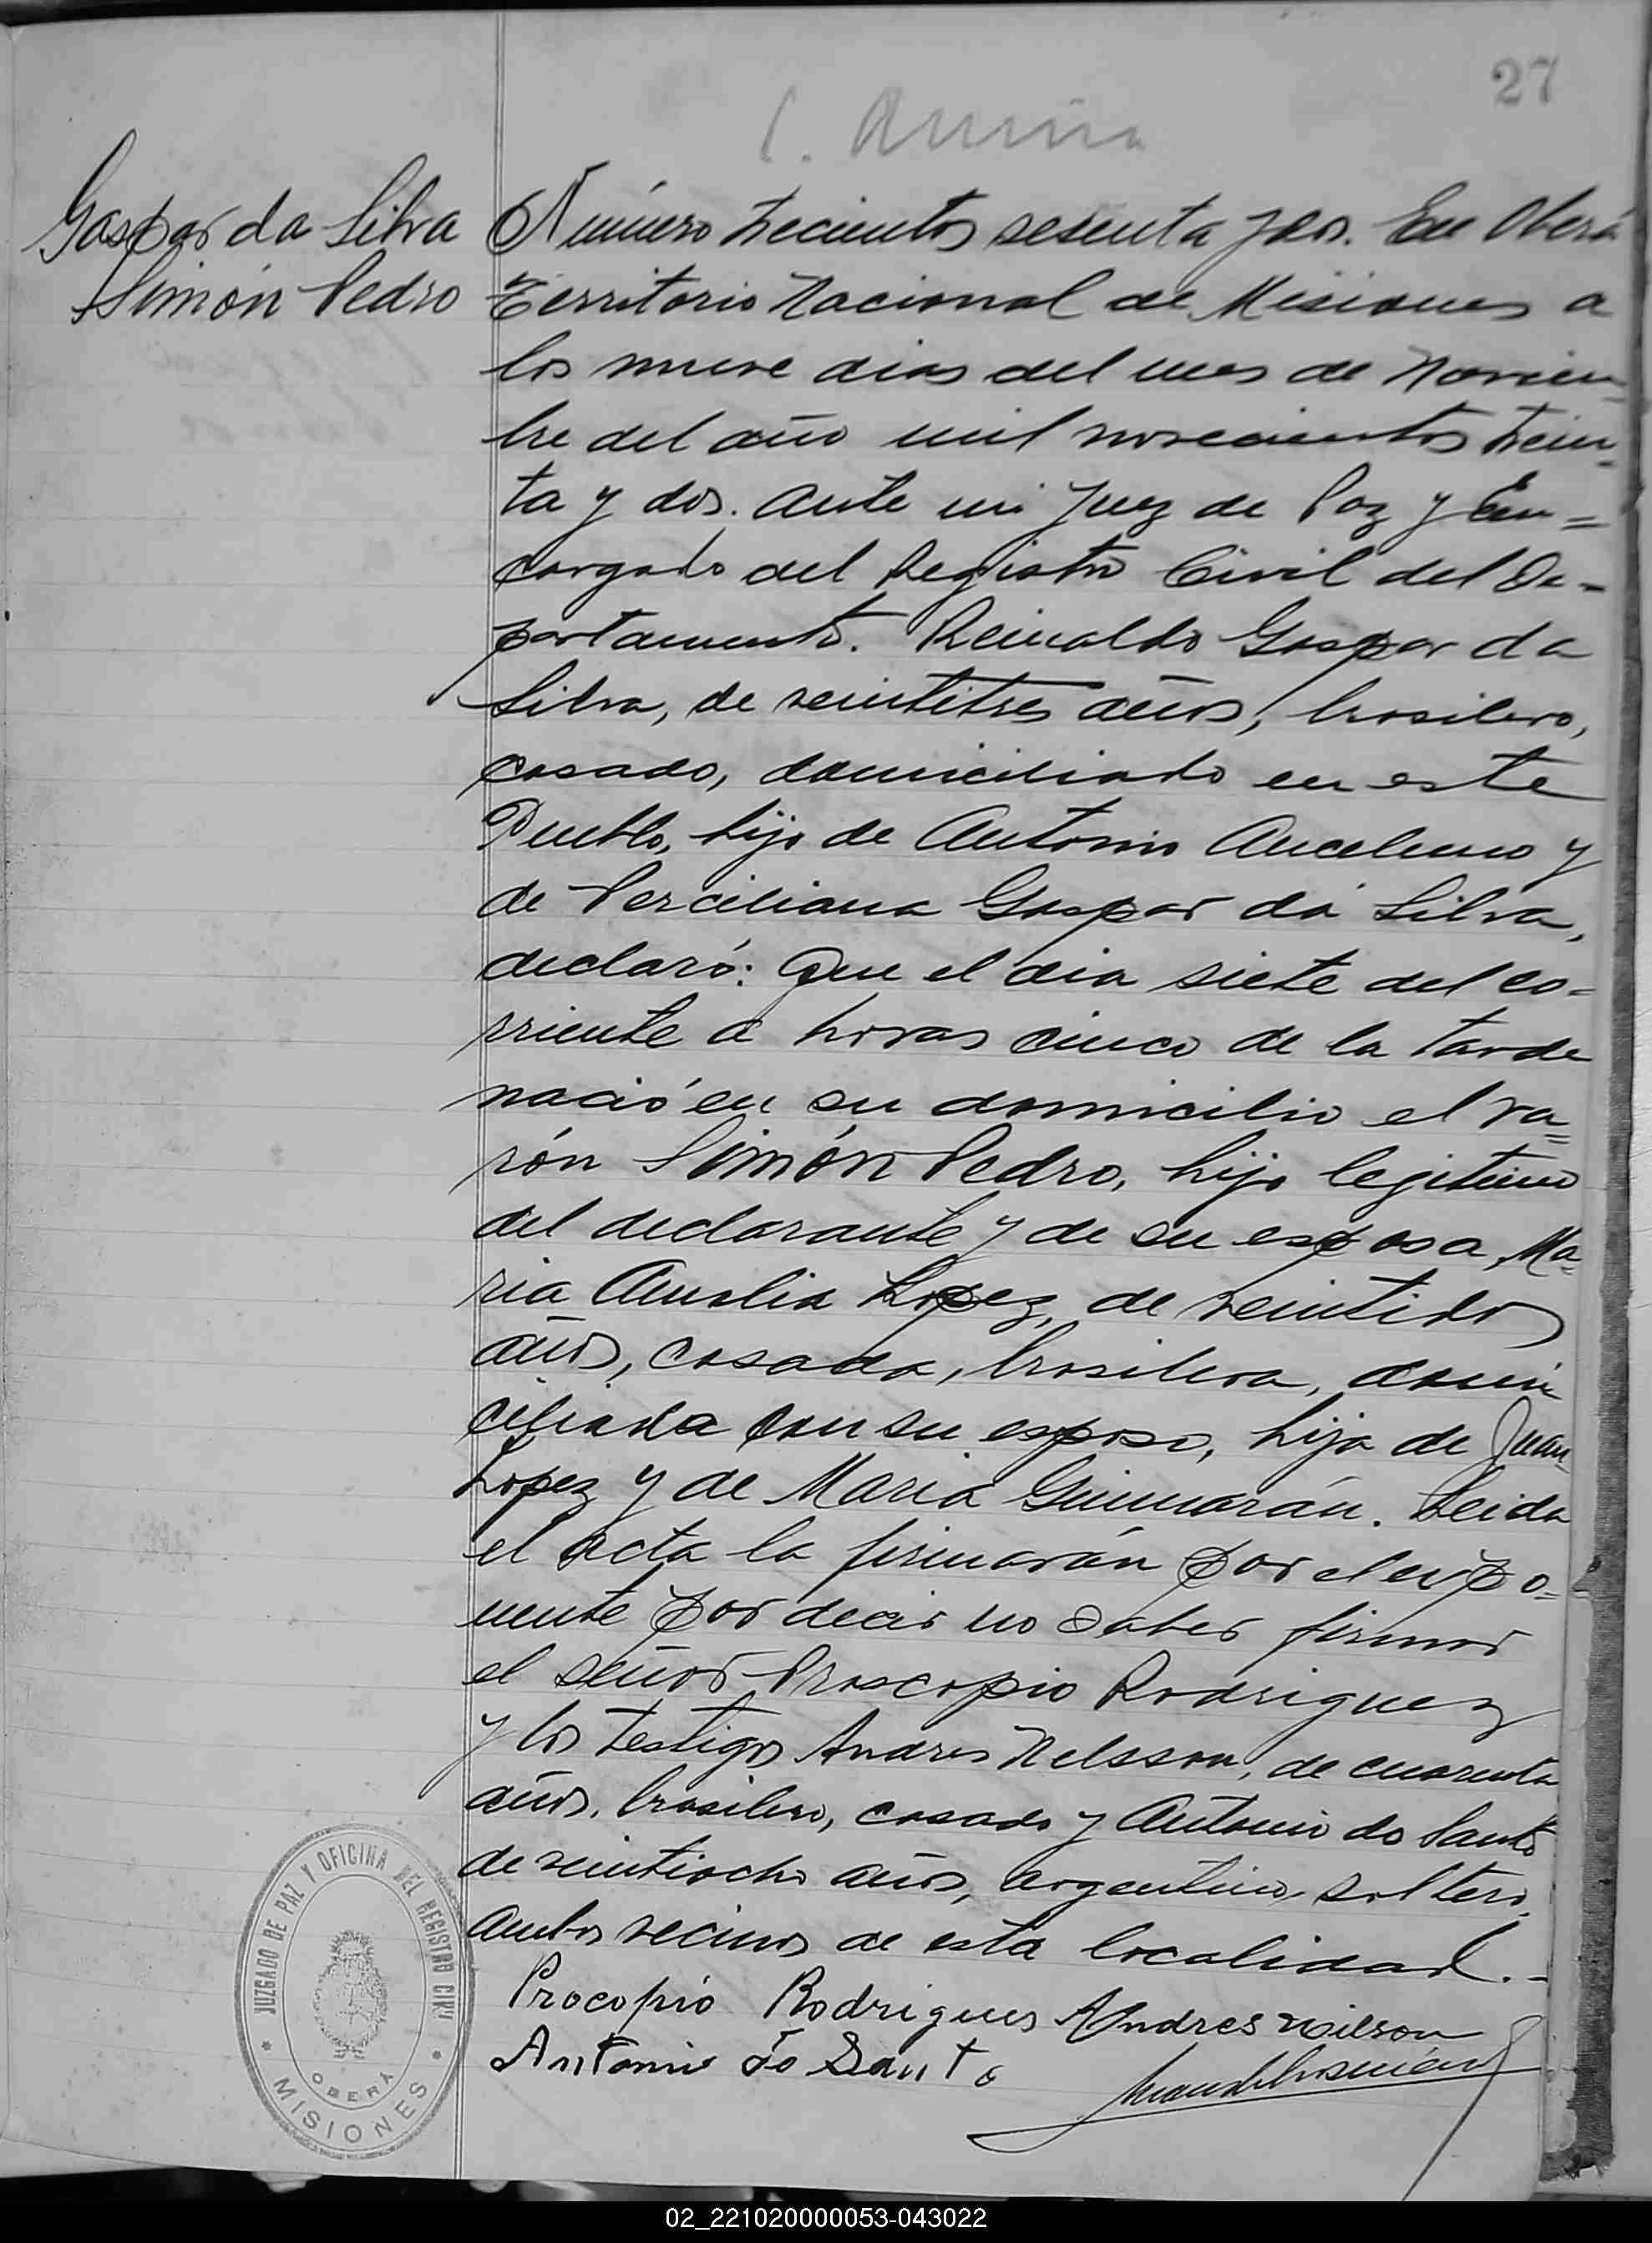 27
Gaspar da Silva
Simón Pedro
Número trecientos sesenta y dos. En Oberá
Territorio Nacional de Misiones a
los nueve dias del mes de Noviem-
bre del año mil novecientos trein-
ta y dos. Ante mi Juez de Paz y En=
cargado del Registro Civil del De-
partamento. Reinaldo Gaspar da
Silva, de veintitres años, brasilero,
casado, domiciliado en este
Pueblo, hijo de Antonio Ancelmo y
de Perciliana Gaspar da Silva,
declaró: Que el dia siete del co-
rriente a horas cinco de la tarde
nació en su domicilio el va=
rón Simón Pedro, hijo legitimo
del declarante y de su esposa, Ma=
ria Amalia Lopez, de veintidos
años, casada, brasilera, domi
ciliada con su esposo, hija de Juan
Lopez y de Maria Guimarán. Leida
el acta la firmarán por el expo-
nente por decir no saber firmar
el señor Proscopio Rodriguez
y los testigos Andres Nelsson, de cuarenta
años, brasilero, casado y Antonio do Santo
de veintiocho años, argentino, soltero,
ambos vecinos de esta localidad.-
Procopio Rodrigues Andres Nilson
Antonio do Santo
JUZGADO DE PAZ Y OFICINA DEL REGISTRO CIVIL
OBERÁ
* MISIONES *
02_221020000053-043022